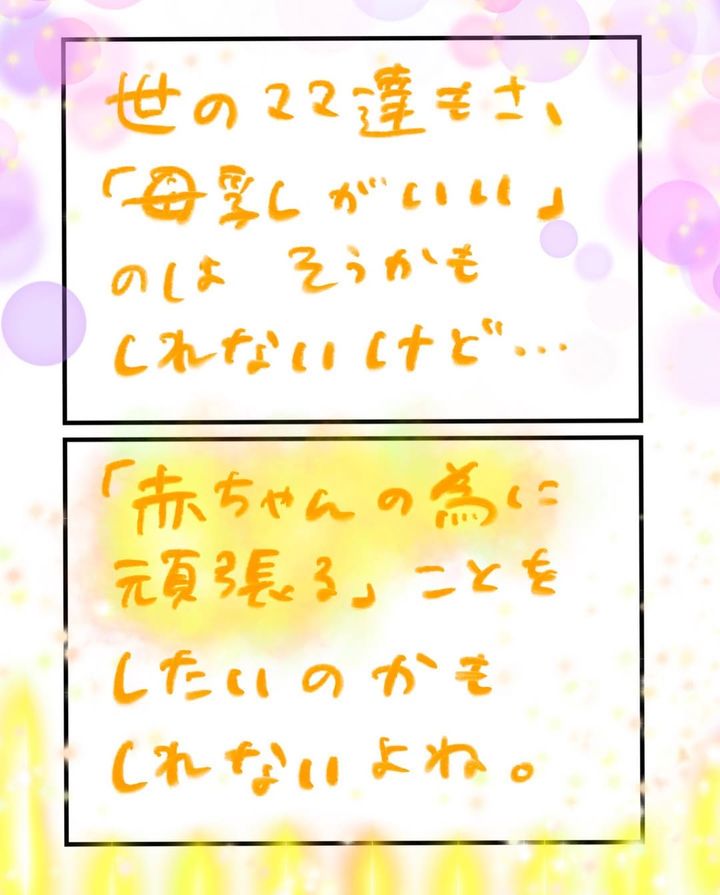 世のママ達もさ、
「母乳がいい」
のは そうかも
しれないけど…
「赤ちゃんの為に
頑張る」ことを
したいのかも
しれないよね。